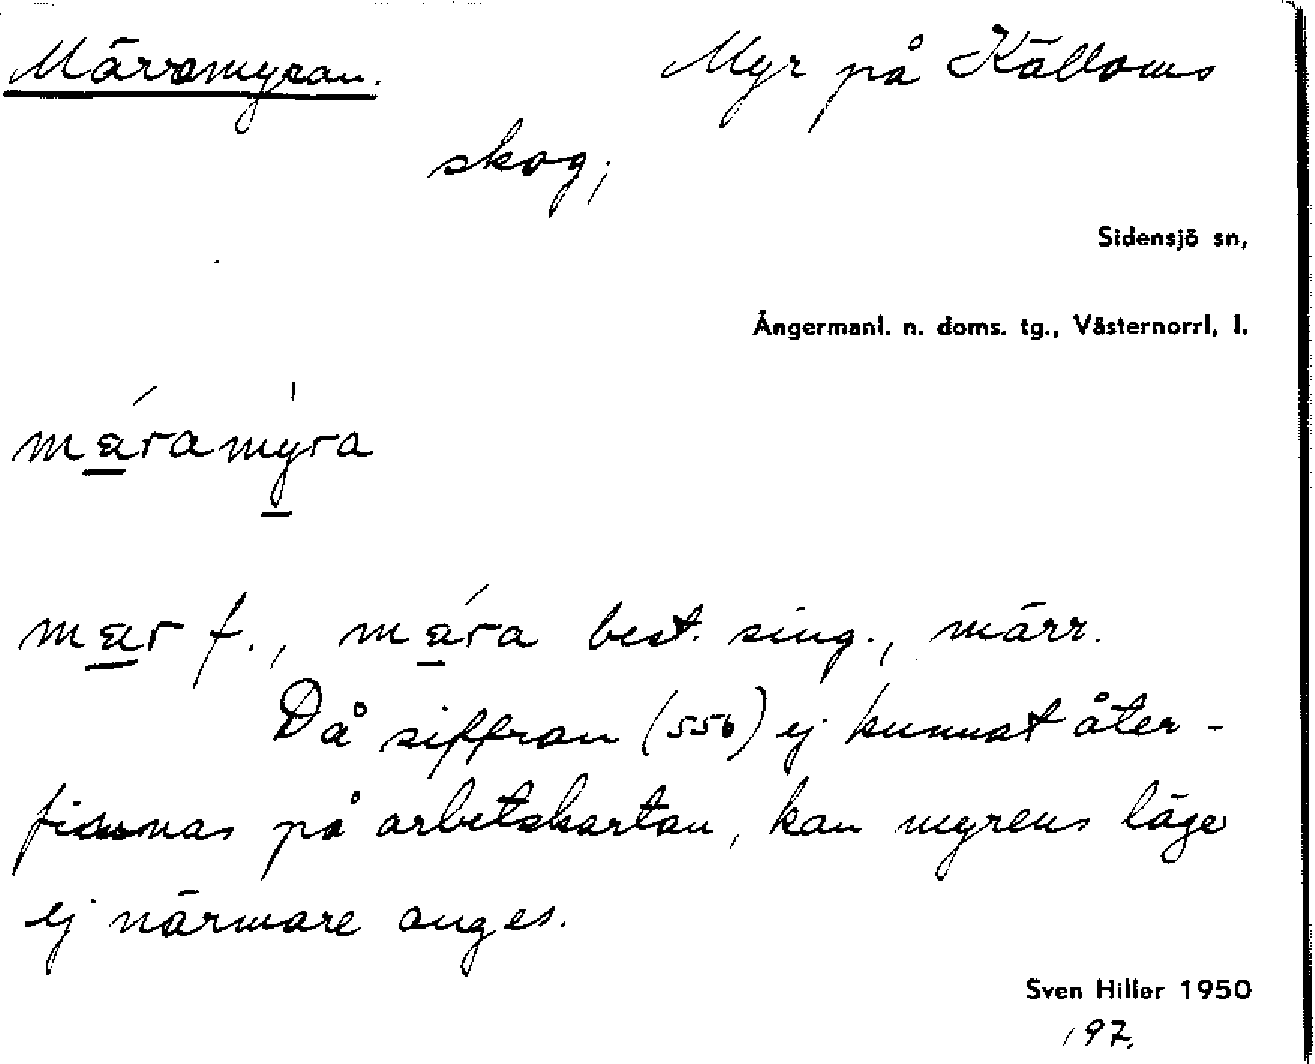 Märramyran. Myr på Källoms
skog;
Sidensjö sn,
Ångermanl. n. doms. tg., Västernorrl. l.
mǽramy̍ra
mær f., mǽra best. sing., märr.
Då siffran (556) ej kunnat åter-
finnas på arbetskartan, kan myrens läge
ej närmare anges.
Sven Hiller 1950
197.